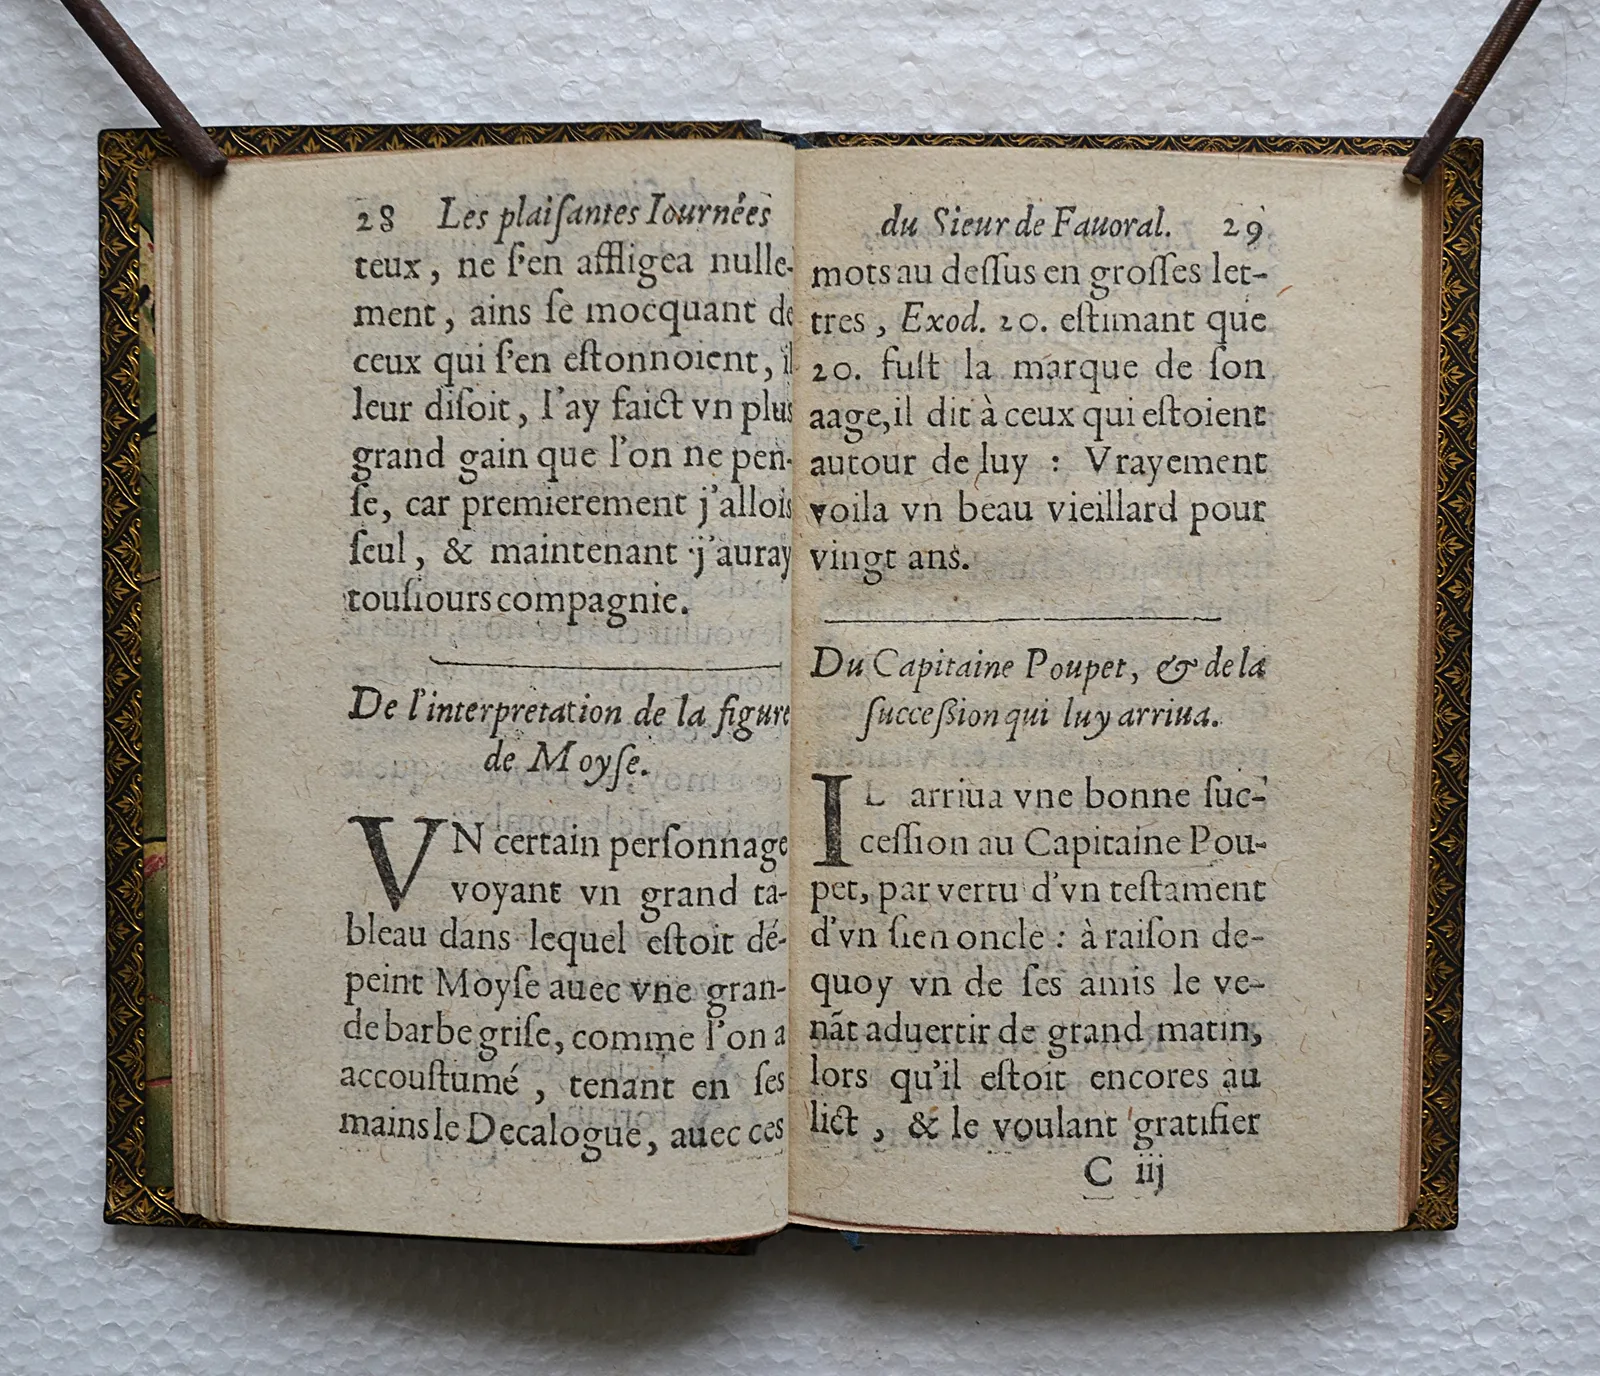 28 Les plaiſantes Iournées
teux, ne ſ'en affligea nulle-
ment, ains ſe mocquant de
ceux qui ſ'en eſtonnoient, il
leur diſoit, I'ay faict vn plus
grand gain que l'on ne pen-
ſe, car premierement j'allois
ſeul, & maintenant j'auray
touſiours compagnie.
De l'interpretation de la figure
de Moyſe.
VN certain perſonnage
voyant vn grand ta-
bleau dans lequel eſtoit dé-
peint Moyſe auec vne gran-
de barbe griſe, comme l'on a
accouſtumé, tenant en ſes
mains le Decalogue, auec ces
du Sieur de Fauoral. 29
mots au deſſus en groſſes let-
tres, Exod. 20. eſtimant que
20. fuſt la marque de ſon
aage, il dit à ceux qui eſtoient
autour de luy : Vrayement
voila vn beau vieillard pour
vingt ans.
Du Capitaine Poupet, & de la
ſucceſſion qui luy arriua.
IL arriua vne bonne ſuc-
ceſſion au Capitaine Pou-
pet, par vertu d'vn teſtament
d'vn ſien oncle : à raiſon de-
quoy vn de ſes amis le ve-
nãt aduertir de grand matin,
lors qu'il eſtoit encores au
lict, & le voulant gratifier
C iij